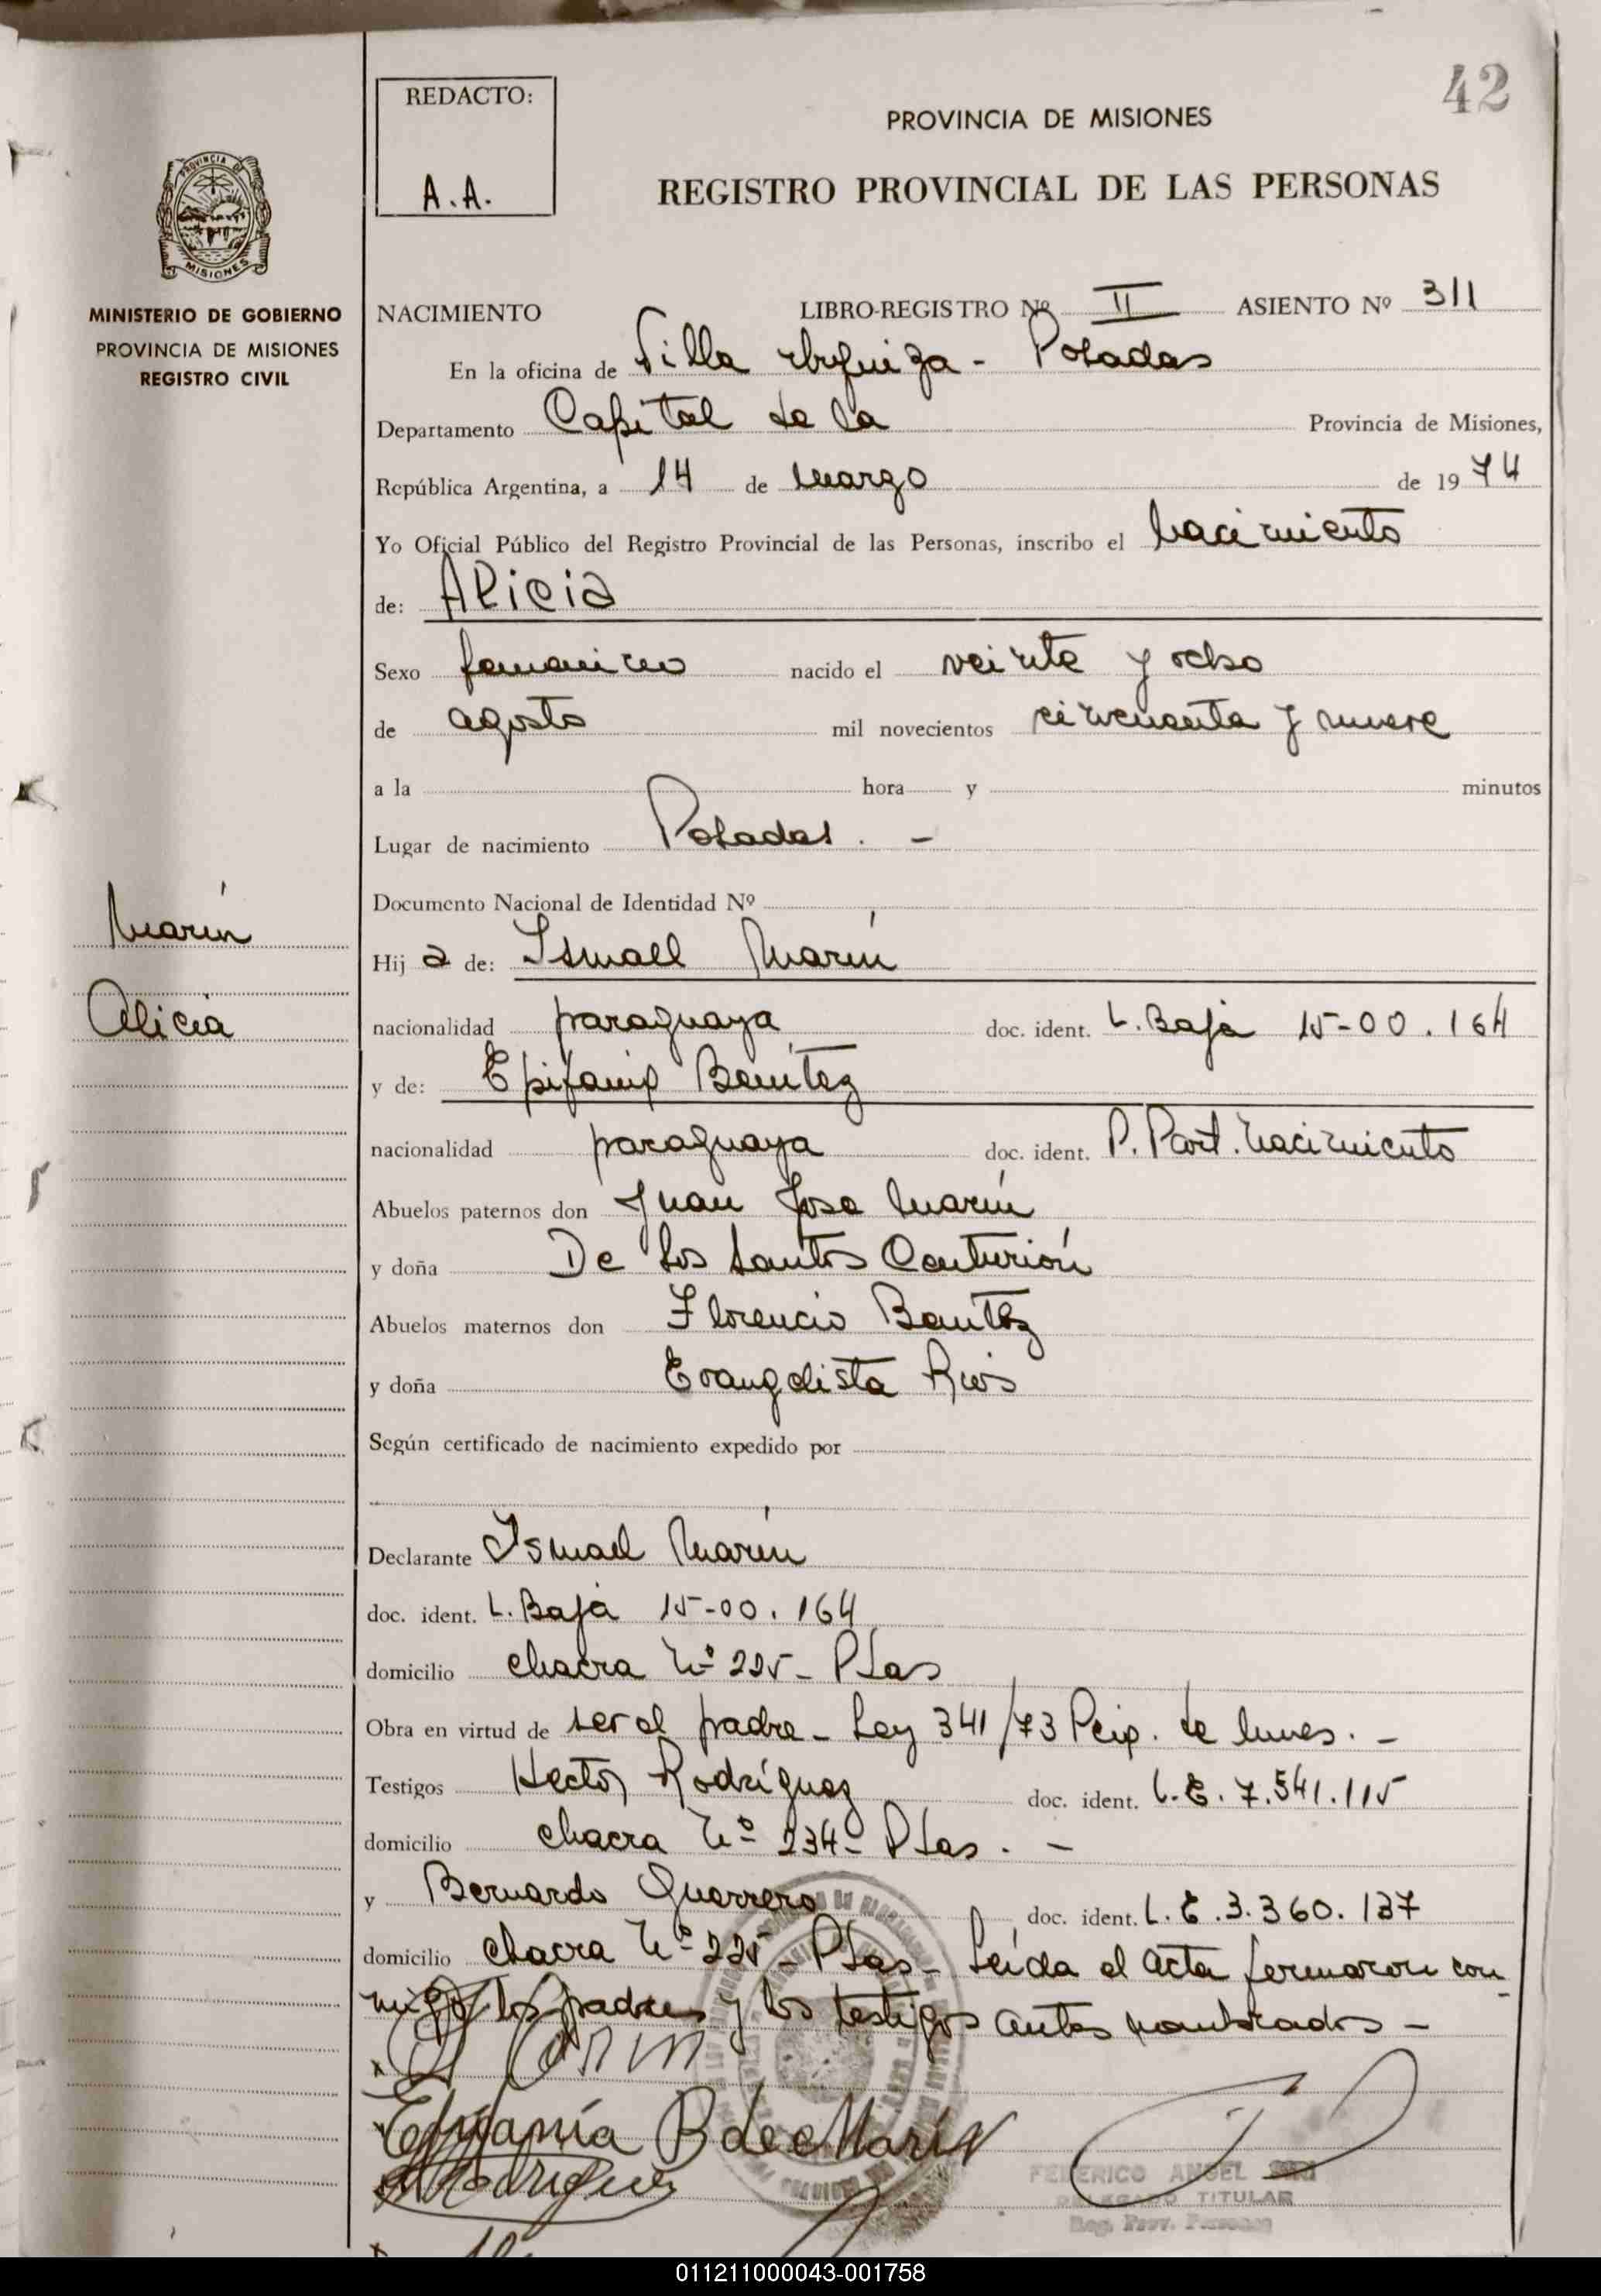 42
REDACTO:
A.A.
PROVINCIA DE MISIONES
REGISTRO PROVINCIAL DE LAS PERSONAS
PROVINCIA DE
MISIONES
MINISTERIO DE GOBIERNO
PROVINCIA DE MISIONES
REGISTRO CIVIL
NACIMIENTO LIBRO-REGISTRO Nº II ASIENTO Nº 311
En la oficina de Villa Urquiza - Posadas
Departamento Capital de la Provincia de Misiones,
República Argentina, a 14 de marzo de 1974
Yo Oficial Público del Registro Provincial de las Personas, inscribo el nacimiento
de: Alicia
Sexo femenino nacido el veinte y ocho
de agosto mil novecientos cincuenta y nueve
a la hora y minutos
Lugar de nacimiento Posadas. -
Documento Nacional de Identidad Nº
Marín
Alicia
Hij a de: Ismael Marín
nacionalidad paraguaya doc. ident. L. Baja 15-00.164
y de: Epifania Benítez
nacionalidad paraguaya doc. ident. P. Part. nacimiento
Abuelos paternos don Juan José Marín
y doña De los Santos Centurión
Abuelos maternos don Florencio Benítez
y doña Evangelista Rios
Según certificado de nacimiento expedido por
Declarante Ismael Marín
doc. ident. L. Baja 15-00.164
domicilio chacra Nº 225 - Pdas
Obra en virtud de ser el padre - Ley 341/73 de
Testigos Hector Rodríguez doc. ident. L.E. 7.541.115
domicilio chacra Nº 234 - Pdas. -
y Bernardo Guerrero doc. ident. L.E. 3.360.137
domicilio chacra Nº 225 - Pdas - Leída el acta firmaron con-
migo los padres y los testigos antes nombrados -
Epifanía B de Marín
Rodrigues
FEDERICO ANGEL
DELEGADO TITULAR
Reg. Prov. Personas
011211000043-001758